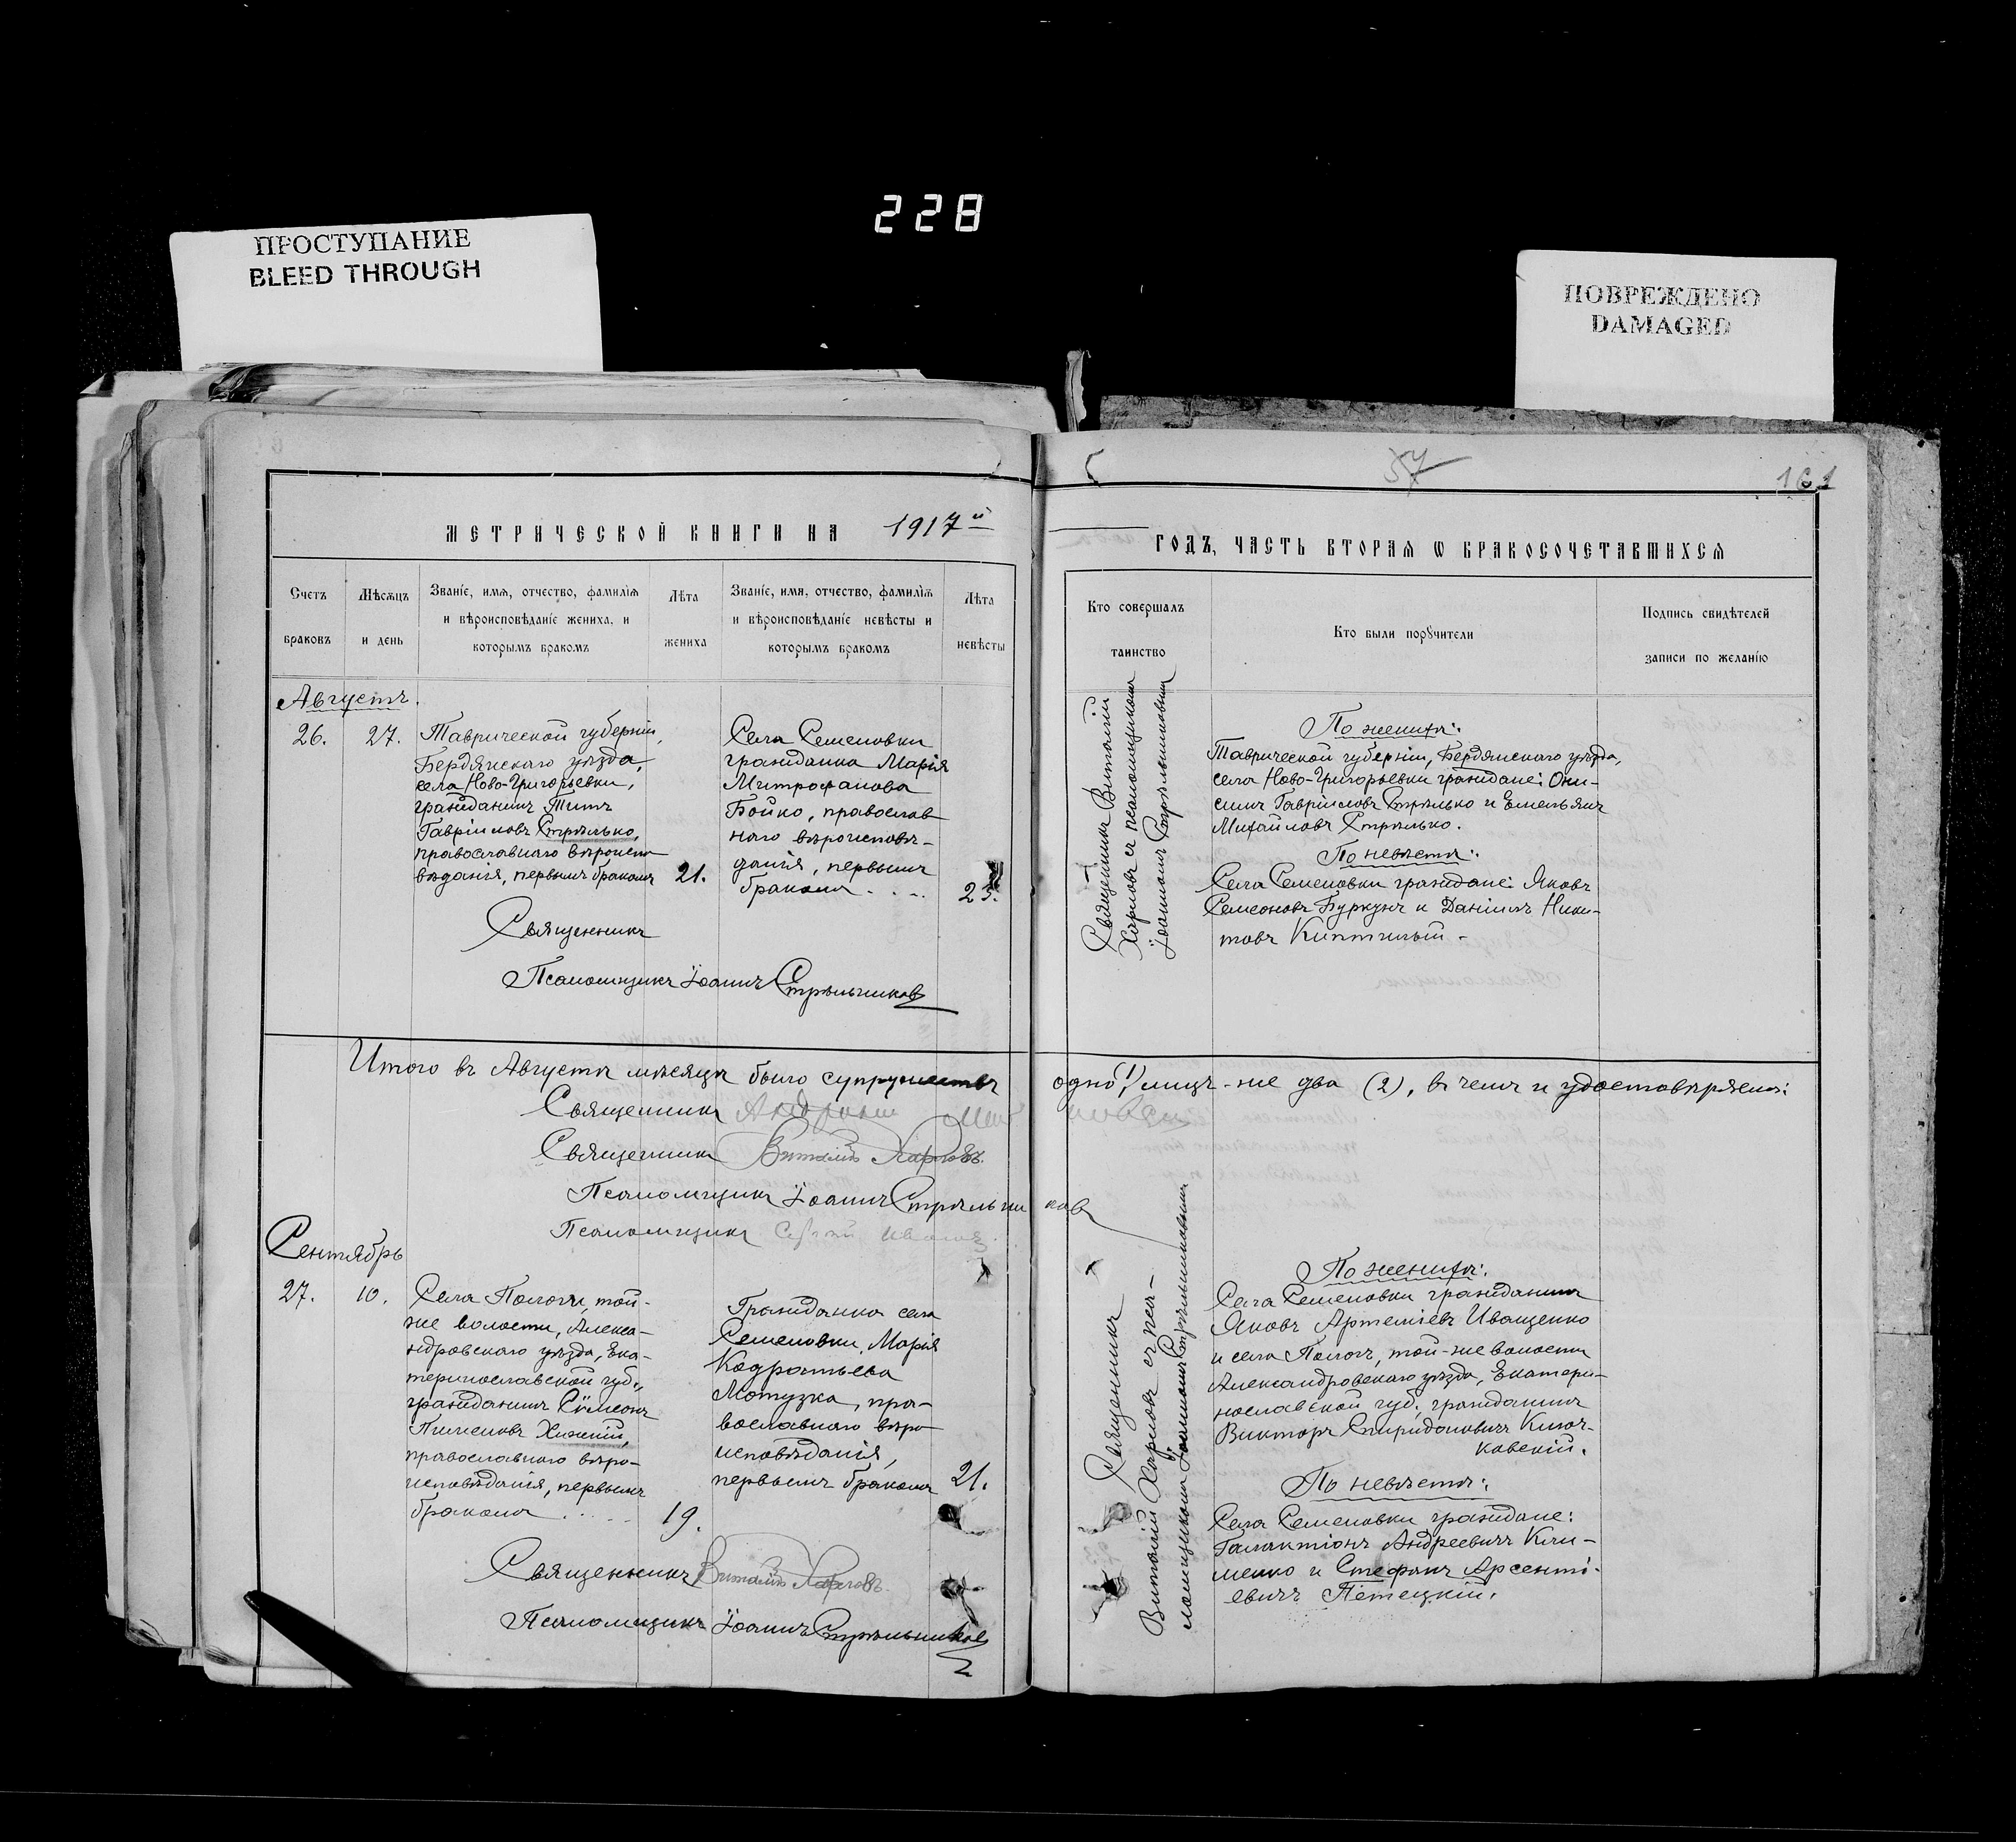 228
ПРОСТУПАНИЕ
BLEED THROUGH
ПОВРЕЖДЕНО
DAMAGED
57
161
МЕТРИЧЕСКОЙ КНИГИ НА 1917й
ГОДЪ, ЧАСТЬ ВТОРАЯ Ѡ БРАКОСОЧЕТАВШИХСЯ
Счетъ
браковъ
Мѣсяцъ
и день
Званіе, имя, отчество, фамилія
и вѣроисповѣданіе жениха, и
которымъ бракомъ
Лѣта
жениха
Званіе, имя, отчество, фамилія
и вѣроисповѣданіе невѣсты и
которымъ бракомъ
Лѣта
невѣсты
Кто совершалъ
таинство
Кто были поручители
Подпись свидѣтелей
записи по желанію
Августъ.
26.
27.
Таврической губерніи,
Бердянскаго уѣзда,
села Ново-Григорьевки,
гражданинъ Титъ
Гавріиловъ Стрѣлько,
православнаго вѣроиспо
вѣданія, первымъ бракомъ
21.
Села Семеновки
гражданка Марія
Митрофанова
Бойко, православ
наго вѣроисповѣ-
данія, первымъ
бракомъ
23.
Священникъ
Псаломщикъ Іоаннъ Стрѣльниковъ
Священникъ Виталій
Харловъ съ псаломщикомъ
Іоанномъ Стрѣльниковымъ
По женихѣ:
Таврической губерніи, Бердянскаго уѣзда,
села Ново-Григорьевки граждане: Они-
симъ Гавріиловъ Стрѣлько и Емельянъ
Михайловъ Стрѣлько.
По невѣстѣ:
Села Семеновки граждане: Яковъ
Семеоновъ Буркунъ и Даніилъ Ники-
товъ
Итого въ Августѣ мѣсяцѣ было супружествъ одно (1) лицъ-же два (2), въ чемъ и удостовѣряемъ:
Священникъ
Священникъ Виталій Харловъ.
Псаломщикъ Іоаннъ Стрѣльниковъ
Псаломщикъ
Сентябрь
27.
10.
Села Пологи, той-
же волости, Алекса-
ндровскаго уѣзда, Ека-
теринославской губ.,
гражданинъ Сѵмеонъ
Пименовъ Хижній,
православнаго вѣро-
исповѣданія, первымъ
бракомъ
19.
Гражданка села
Семеновки, Марія
Кодратьева
Мотузка, пра-
вославнаго вѣро
исповѣданія,
первымъ бракомъ
21.
Священникъ Виталій Харловъ.
Псаломщикъ Іоаннъ Стрѣльниковъ
Священникъ
Виталій Харловъ съ пса-
ломщикомъ Іоанномъ Стрѣльниковымъ
По женихѣ:
Села Семеновки гражданинъ
Яковъ Артеміевъ Иващенко
и села Пологъ, той-же волости
Александровскаго уѣзда, Екатери-
нославской губ. гражданинъ
Викторъ Спиридоновичъ Ключ-
ковскій.
По невѣстѣ:
Села Семеновки граждане:
Галактіонъ Андреевичъ Кли-
менко и Стефанъ Арсенті-
евичъ Петецкій.